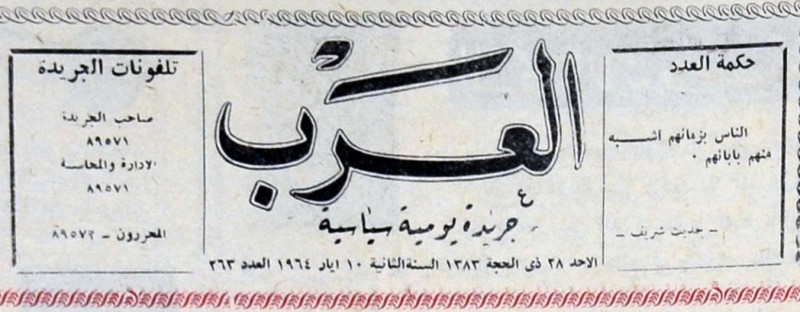 حكمة العدد
الناس بزمانهم اشبه
منهم بابائهم .
ـ حديث شريف ـ
العرب
جريدة يومية سياسية
الاحد ٢٨ ذى الحجة ١٣٨٣ السنة الثانية ١٠ ايار ١٩٦٤ العدد ٢٦٣
تلفونات الجريدة
صاحب الجريدة
٨٩٥٧١
الادارة والمحاسبة
٨٩٥٧١
المحررون ـ ٨٩٥٧٢